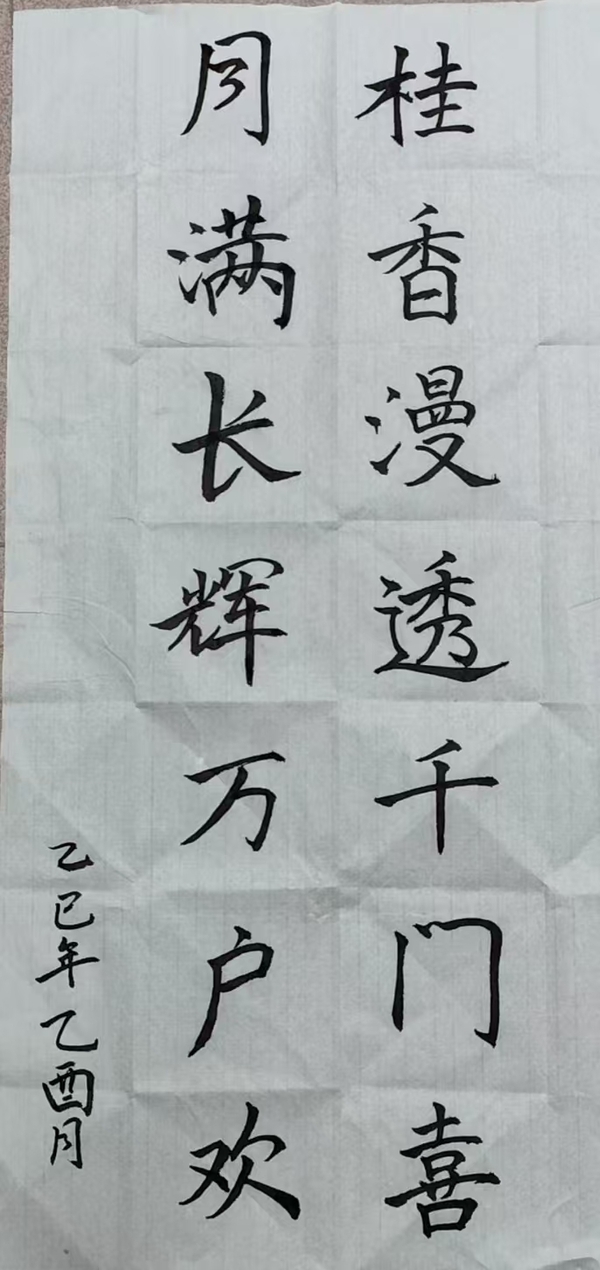 桂香漫透千门喜
月满长辉万户欢
乙巳年乙酉月